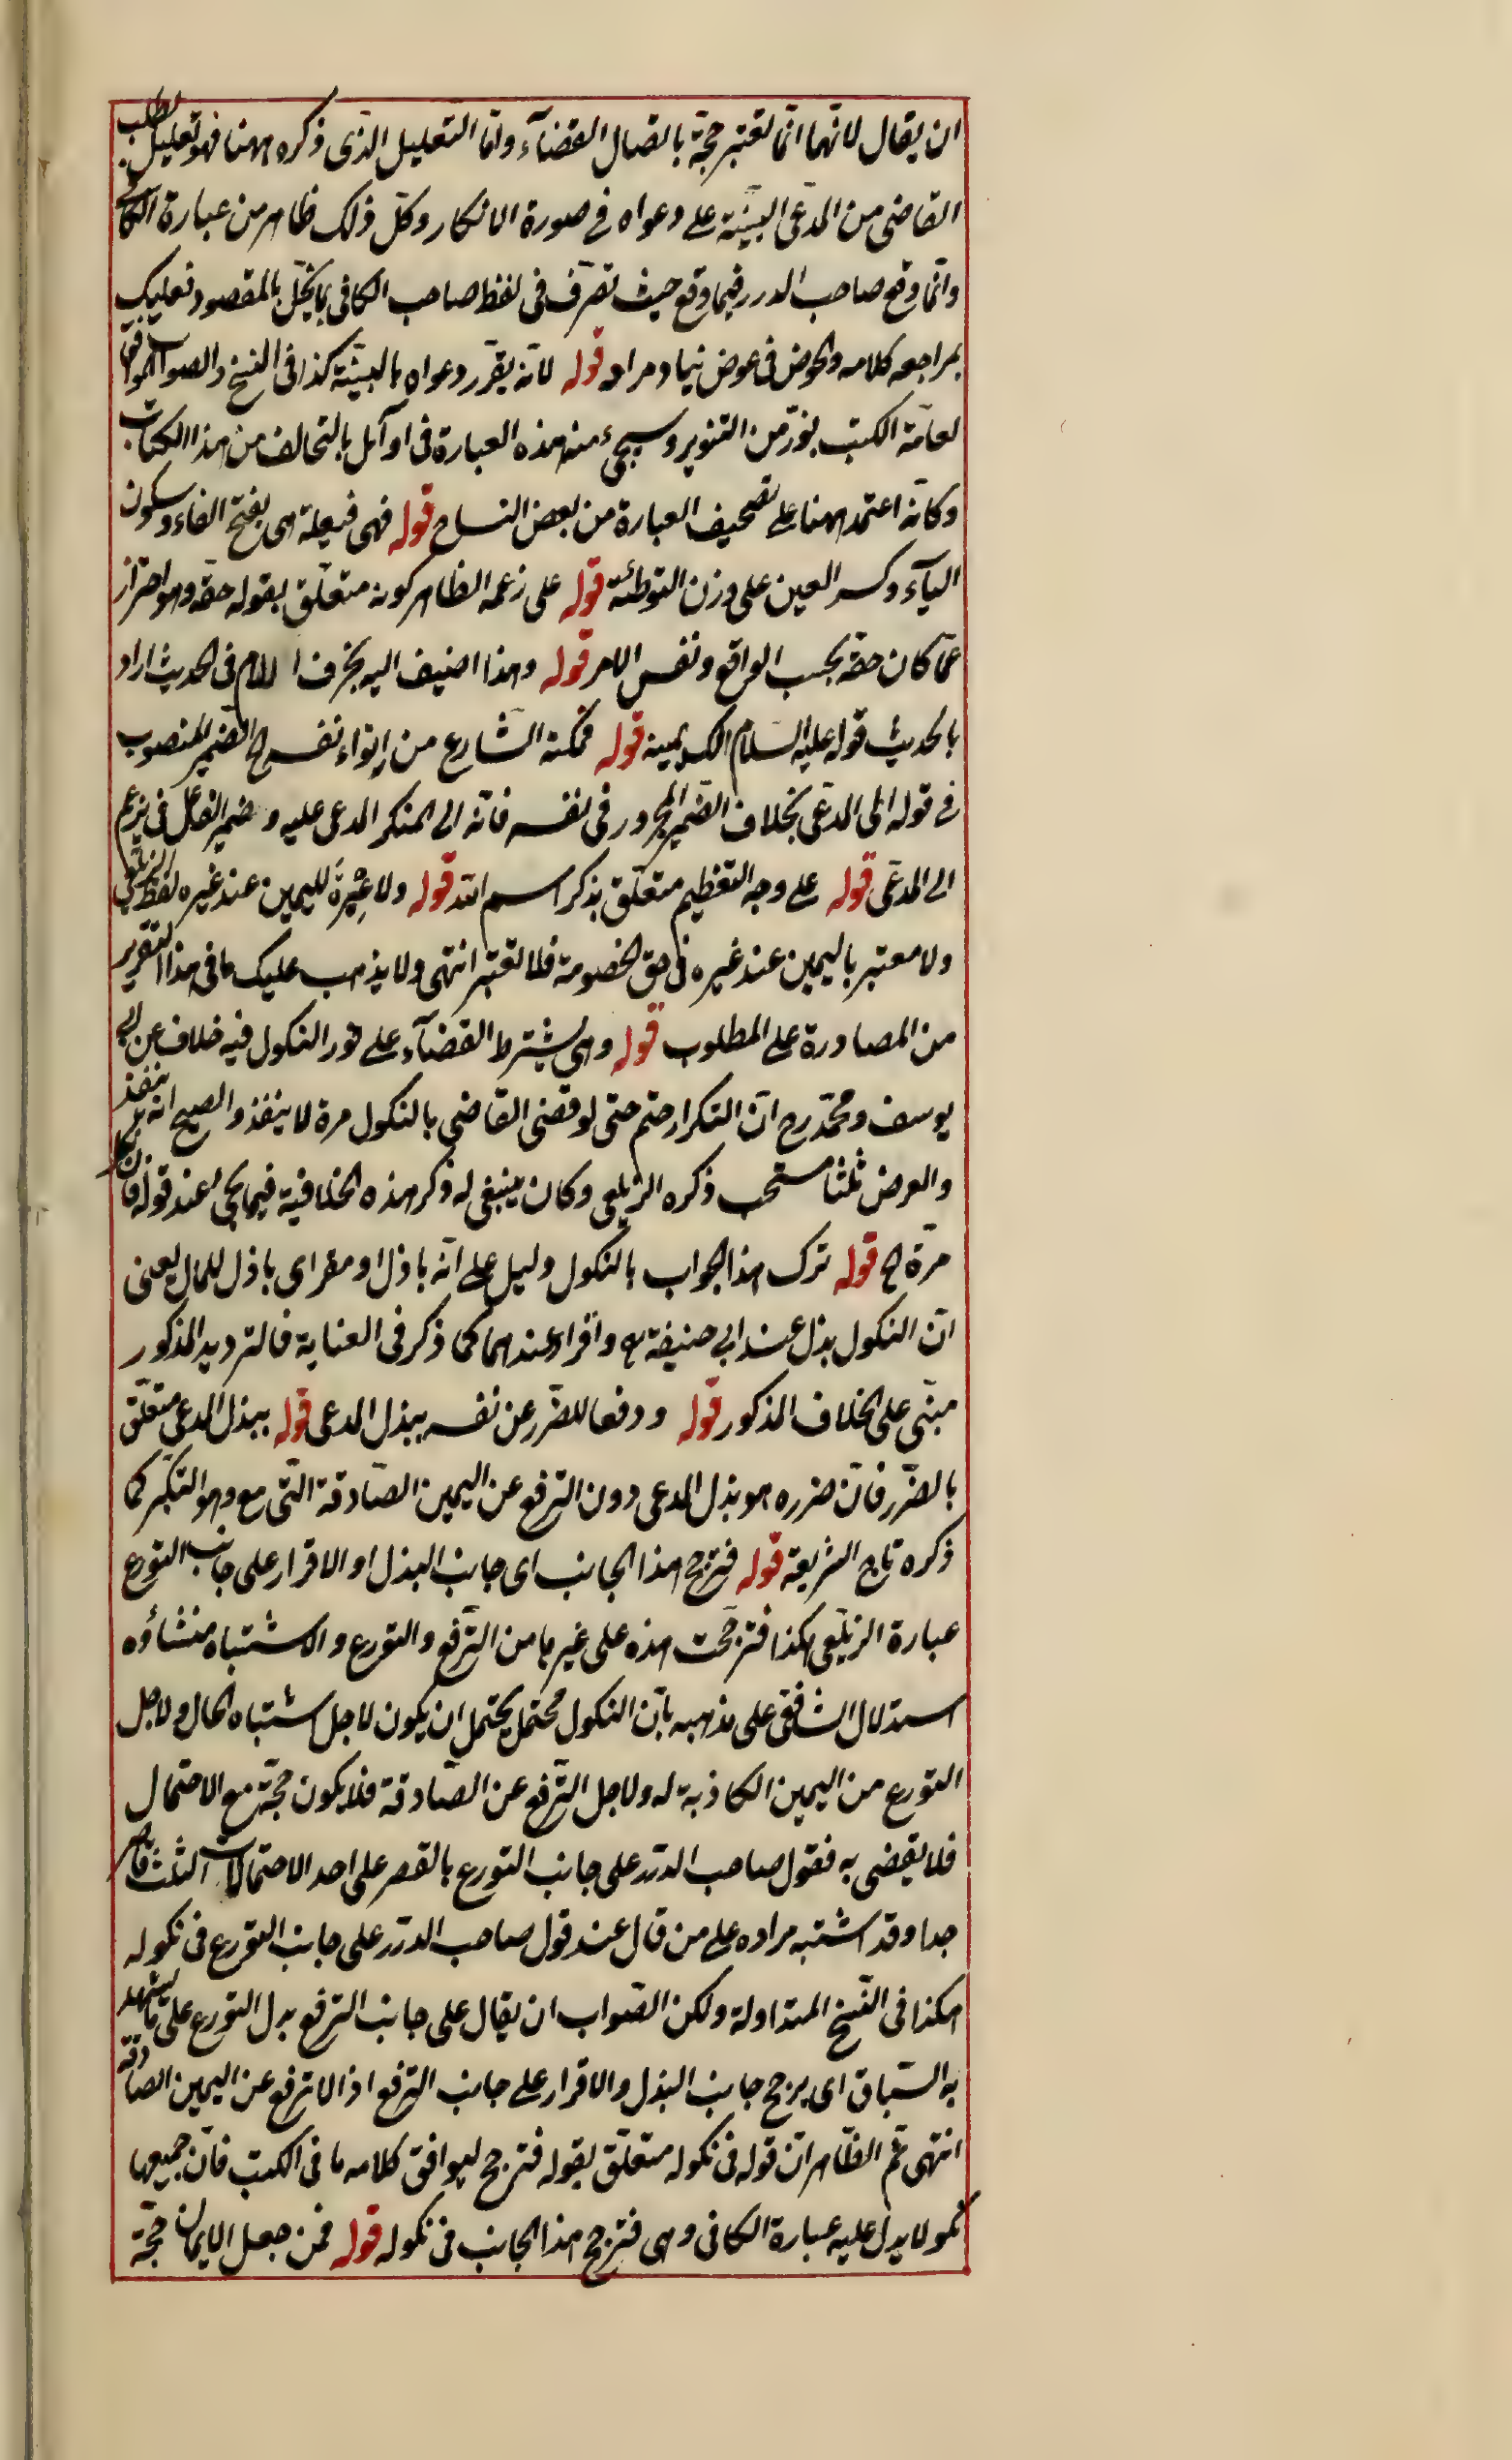 ان يقال لانّها انّما تعتبر حجّة باتصال القضآء وامّا التعليل الّذى ذكره ههنا فهو تعليل لطلب
القاضى من المدّعى البيّنة على دعواه فى صورة الانكار وكلّ ذلك ظاهر من عبارة الكافى
وانّما وقع صاحب الدرر فيما وقع حيث تصرّف فى لفظ صاحب الكافى بما يخلّ بالمقصود فعليك
بمراجعه كلامه والخوض فى عوض نيا ومرامه قوله لانّه يقرّر دعواه بالبيّنة كذا فى النسخ والصواب الموافق
لعامّة الكتب ينوّر من التنوير وسيجئ منه هذه العبارة فى اوآئل بالتحالف من هذا الكتاب
وكانّه اعتمد ههنا على تصحيف العبارة من بعض النساخ قوله فهى فيعلة هى بفتح الفاء وسكون
اليآء وكسر العين على وزن التوطئة قوله على زعمه الظاهر كونه متعلّق بقوله حقّه وهو احتراز
عمّا كان حقّه بحسب الواقع ونفس الامر قوله وهذا اضيف اليه بحرف اللام فى الحديث اراد
بالحديث قوله عليه السّلام الك يمينه قوله فمكنه الشّارع من اتواء نفسه الضمير المنصوب
فى قوله الى المدّعى بخلاف الضّمير المجرور فى نفسه فانّه الى المنكر المدعى عليه وضمير الفاعل فى يزعم
الى المدّعى قوله على وجه التعظيم متعلّق بذكر اسم الله قوله ولا عبرة لليمين عند غيره لفظ الزيلعى
ولا معتبر باليمين عند غيره فى حق الخصومة فلا تعتبر انتهى ولا يذهب عليك ما فى هذا التقرير
من المصادرة على المطلوب قوله وهى يشترط القضآء على فور النكول فيه خلاف عن ابى
يوسف ومحمّد رح انّ التكرار حتم حتى لو قضى القاضى بالنكول مرة لا ينفذ والصحيح انه ينفذ
والعرض ثلثا مستحب ذكره الزيلعى وكان ينبغى له ذكر هذه الخلافية فيما يجئ عند قوله فان نكل
مرّة الخ قوله ترك هذا الجواب بالنكول دليل على انّه باذل او مقر اى باذل للمال يعنى
انّ النكول بذل عند ابى حنيفة رح واقرار عندهما كما ذكر فى العناية فالترديد المذكور
مبنّى على الخلاف المذكور قوله ودفعا للضّرر عن نفسه ببذل المدعى قوله ببذل المدعى متعلّق
بالضّرر فانّ ضرره هو بذل المدعى دون الترفع عن اليمين الصّادقة الّتى مع وهو التكبر كما
ذكره تاج الشريعة قوله فترجح هذا الجانب اى جانب البذل او الاقرار على جانب التورع
عبارة الزيلعى هكذا فترجّحت هذه على غيرها من التّرفّع والتورع والاشتباه منشأؤه
استدلال الشافعى على مذهبه بانّ النكول محتمل يحتمل ان يكون لاجل اشتباه الحال ولاجل
التورع من اليمين الكاذبة له ولاجل التّرفع عن الصّادقة فلا يكون حجّة مع الاحتمال
فلا يقضى به فقول صاحب الدّرر على جانب التورع بالقصر على احد الاحتمالات الثلث قاصر
جدا وقد اشتبه مراده على من قال عند قول صاحب الدرّر على جانب التورع فى نكوله
هكذا فى النّسخ المتداولة ولكن الصّواب ان يقال على جانب الترفع بدل التورع على ما يشهد
به السّباق اى يرجح جانب البذل والاقرار على جانب الترفع اذ الا ترفع عن اليمين الصادقة
انتهى ثم الظّاهر انّ قوله فى نكوله متعلّق بقوله فترجح ليوافق كلامه ما فى الكتب فانّ جميعها
نمو لا يدل عليه عبارة الكافى وهى فترجح هذا الجانب فى نكوله قوله فمن جعل الايمان حجّة